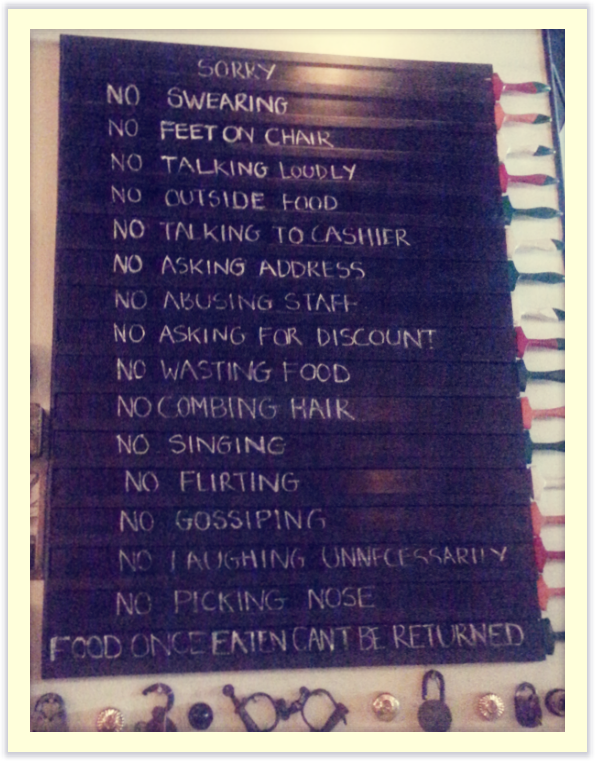 SORRY
NO SWEARING
NO FEET ON CHAIR
NO TALKING LOUDLY
NO OUTSIDE FOOD
NO TALKING TO CASHIER
NO ASKING ADDRESS
NO ABUSING STAFF
NO ASKING FOR DISCOUNT
NO WASTING FOOD
NO COMBING HAIR
NO SINGING
NO FLIRTING
NO GOSSIPING
NO LAUGHING UNNECESSARILY
NO PICKING NOSE
FOOD ONCE EATEN CANT BE RETURNED